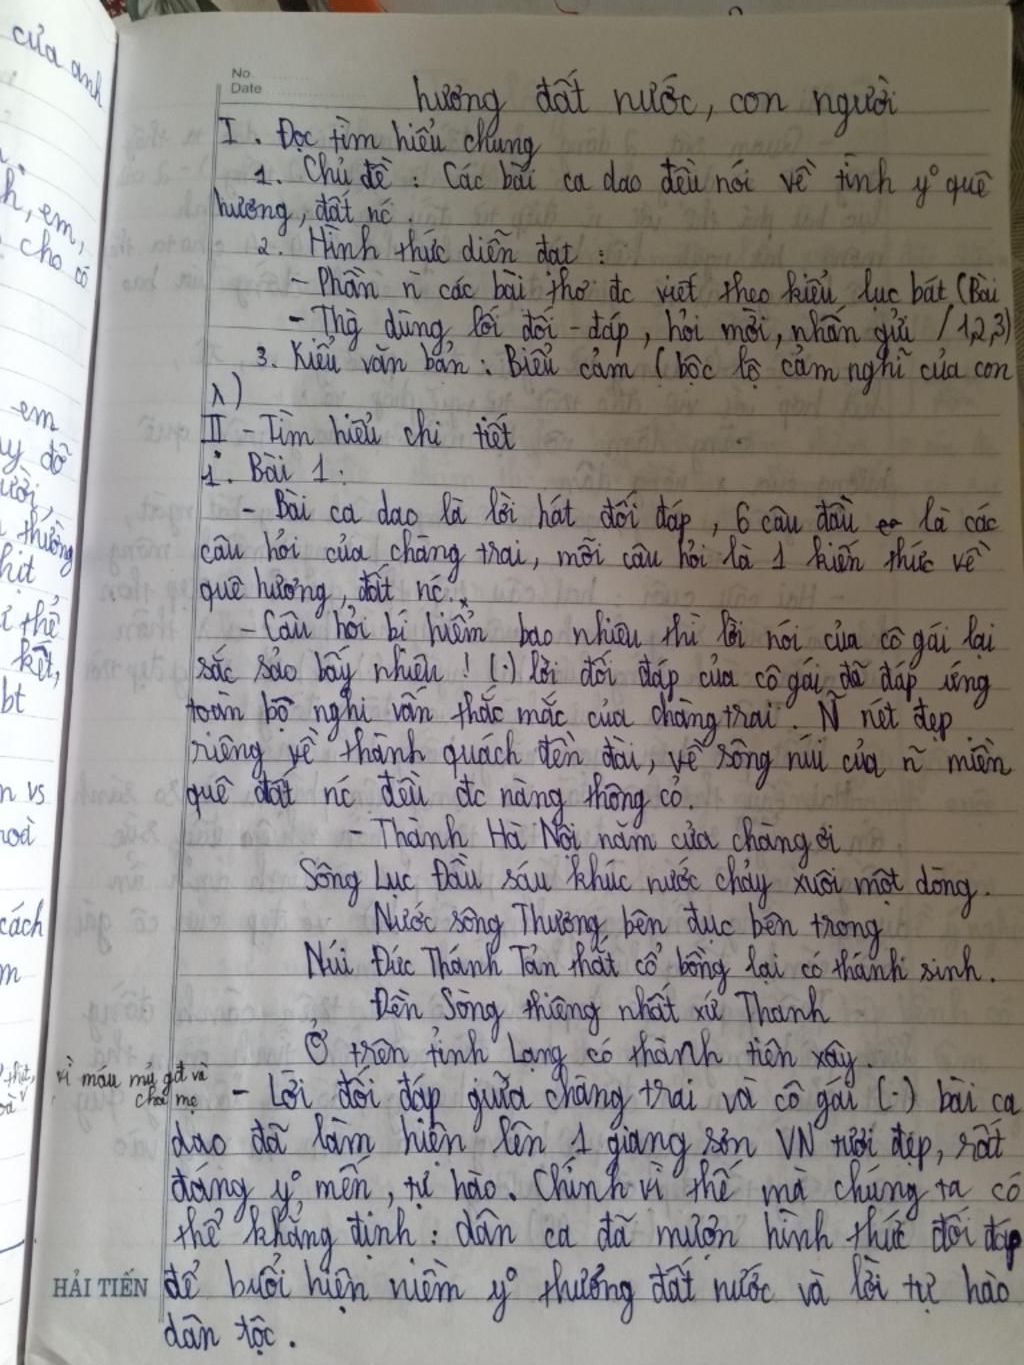 của anh
No.
Date
hương đất nước, con người
I. Đọc tìm hiểu chung
1. Chủ đề : Các bài ca dao đều nói về tình yo quê
hương, đất nc.
2. Hình thức diễn đạt :
- Phần ñ các bài thơ đc viết theo kiểu lục bát (Bài
- Thg dùng lối đối - đáp, hỏi mời, nhắn gửi / 1,2,3)
3. Kiểu văn bản : Biểu cảm ( bộc lộ cảm nghĩ của con
λ)
II - Tìm hiểu chi tiết
1. Bài 1 :
- Bài ca dao là lời hát đối đáp, 6 câu đầu là các
câu hỏi của chàng trai, mỗi câu hỏi là 1 kiến thức về
quê hương, đất nc.
- Câu hỏi bí hiểm bao nhiêu thì lời nói của cô gái lại
sắc sảo bấy nhiêu ! (.) lời đối đáp của cô gái đã đáp ứng
toàn bộ nghi vấn thắc mắc của chàng trai. Ñ nét đẹp
riêng về thành quách đền đài, về sông núi của ñ miền
quê đất nc đều đc nàng thông cỏ.
- Thành Hà Nội năm cửa chàng ơi
Sông Lục Đầu sáu khúc nước chảy xuôi một dòng.
Nước sông Thương bên đục bên trong
Núi Đức Thánh Tản thắt cổ bồng lại có thánh sinh.
Đền Sòng thiêng nhất xứ Thanh
Ở trên tỉnh Lạng có thành tiên xây.
- Lời đối đáp giữa chàng trai và cô gái (.) bài ca
dao đã làm hiện lên 1 giang sơn VN tươi đẹp, rất
đáng yo mến, tự hào. Chính vì thế mà chúng ta có
thể khẳng định : dân ca đã mượn hình thức đối đáp
HẢI TIẾN để buổi hiện niềm yo thương đất nước và lời tự hào
dân tộc.